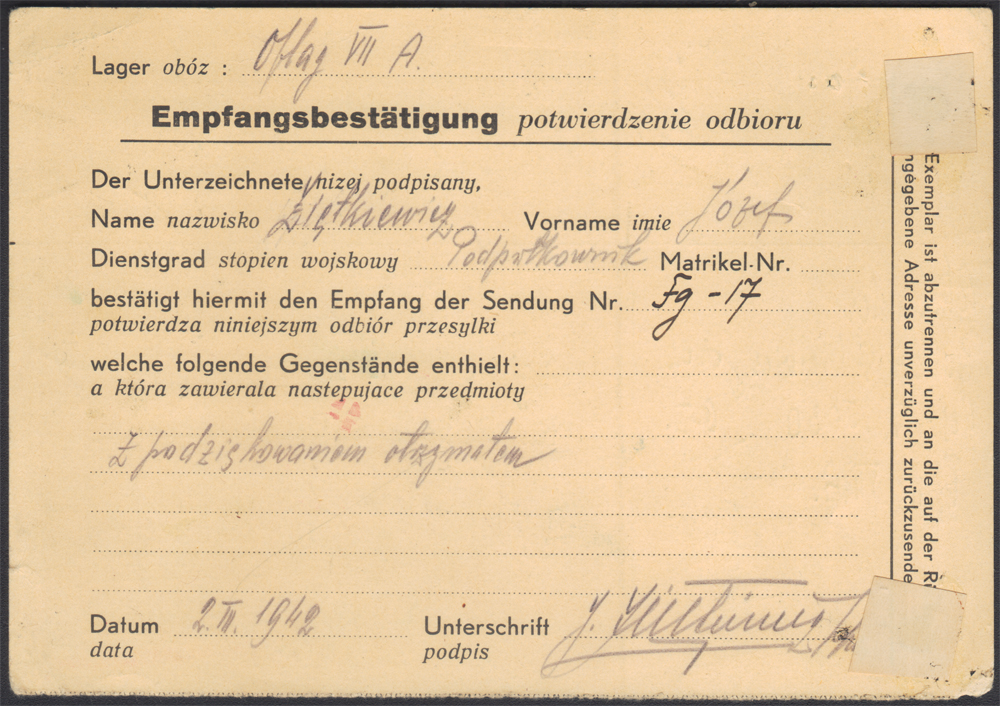 Lager obóz : Oflag VII A.
Empfangsbestätigung potwierdzenie odbioru
Der Unterzeichnete/nizej podpisany,
Name nazwisko Vorname imie Józef
Dienstgrad stopien wojskowy Podpułkownik Matrikel-Nr.
bestätigt hiermit den Empfang der Sendung Nr. Fg - 17
potwierdza niniejszym odbiór przesylki
welche folgende Gegenstände enthielt:
a która zawierala nastepujace przedmioty
Z podziękowaniem otrzymałem
Datum 2.III.1942 Unterschrift J.
data podpis
Exemplar ist abzutrennen und an die auf der
ngegebene Adresse unverzüglich zurückzusende